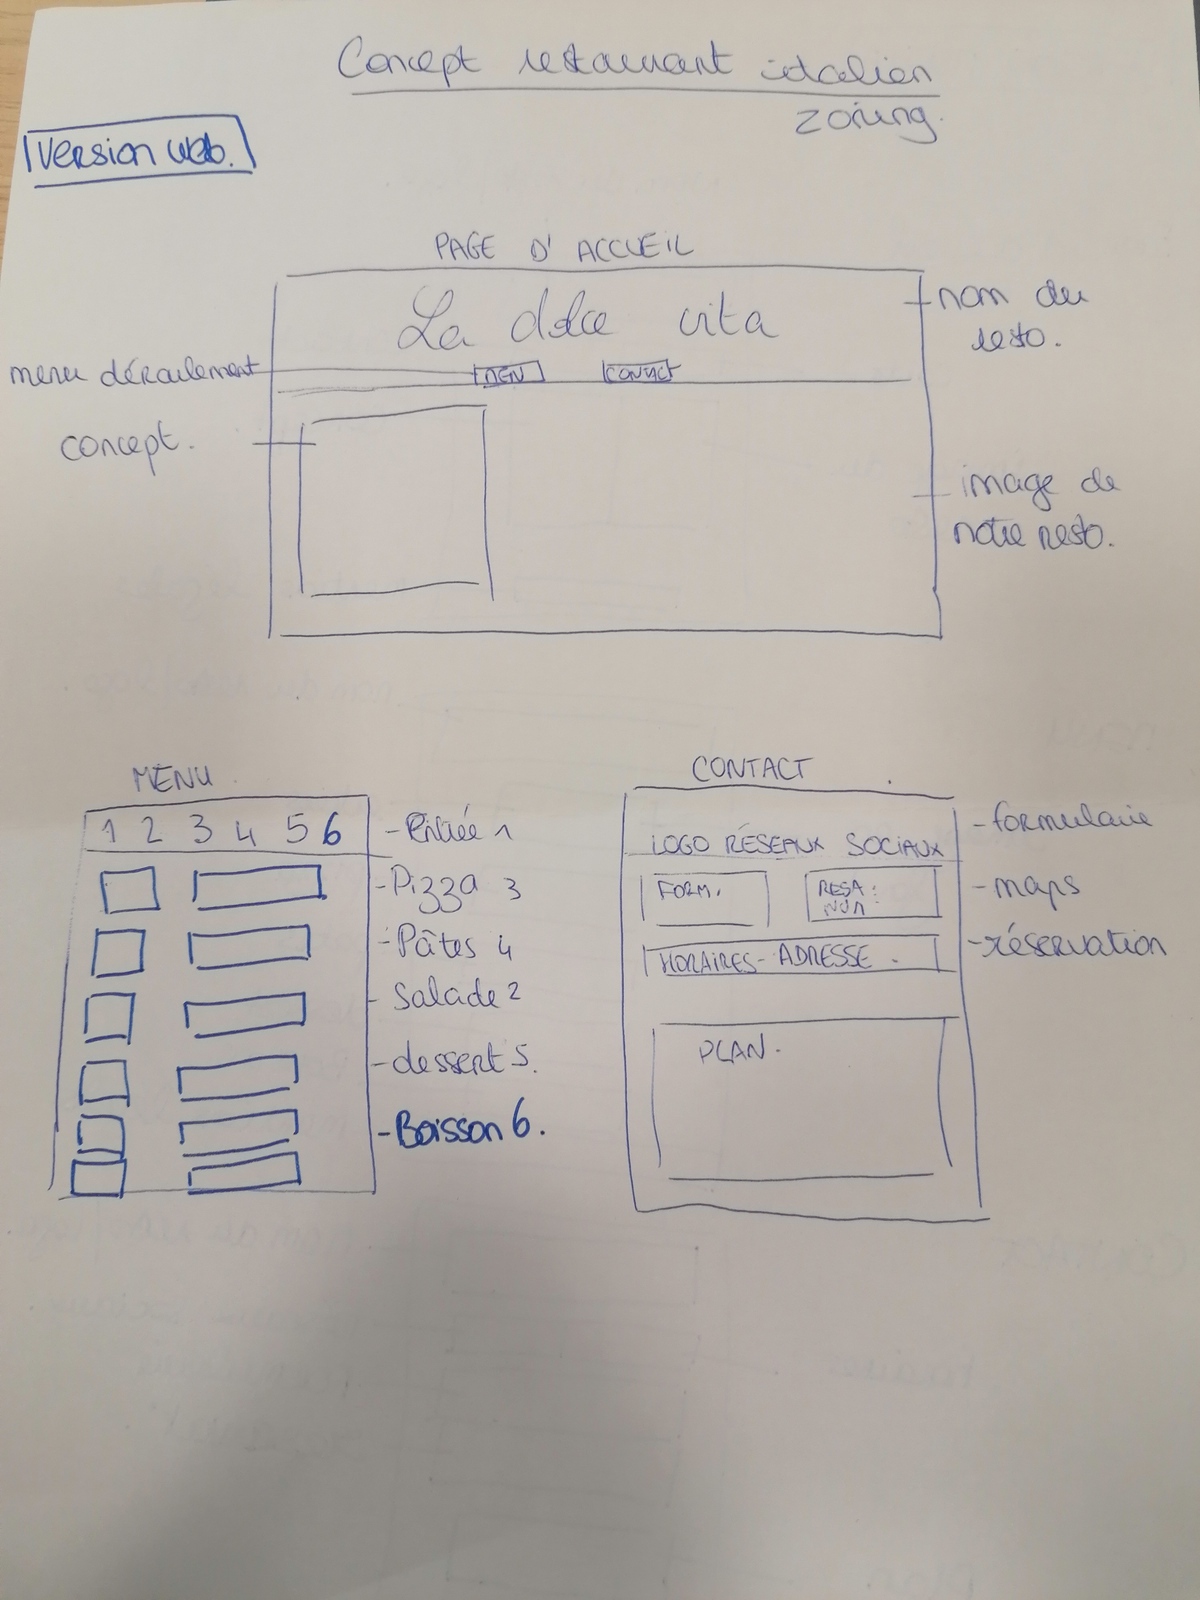 Concept restaurant italien
zoning.
Version web.
PAGE D'ACCUEIL
La dolce vita
nom du
resto.
menu déroulement
MEN
CONTACT
concept.
image de
notre resto.
MENU
1 2 3 4 5 6
- Entrée 1
- Pizza 3
- Pâtes 4
- Salade 2
- dessert 5.
- Boisson 6.
CONTACT
LOGO RÉSEAUX SOCIAUX
FORM.
RESA:
NUM
HORAIRES - ADRESSE.
PLAN.
- formulaire
- maps
- réservation